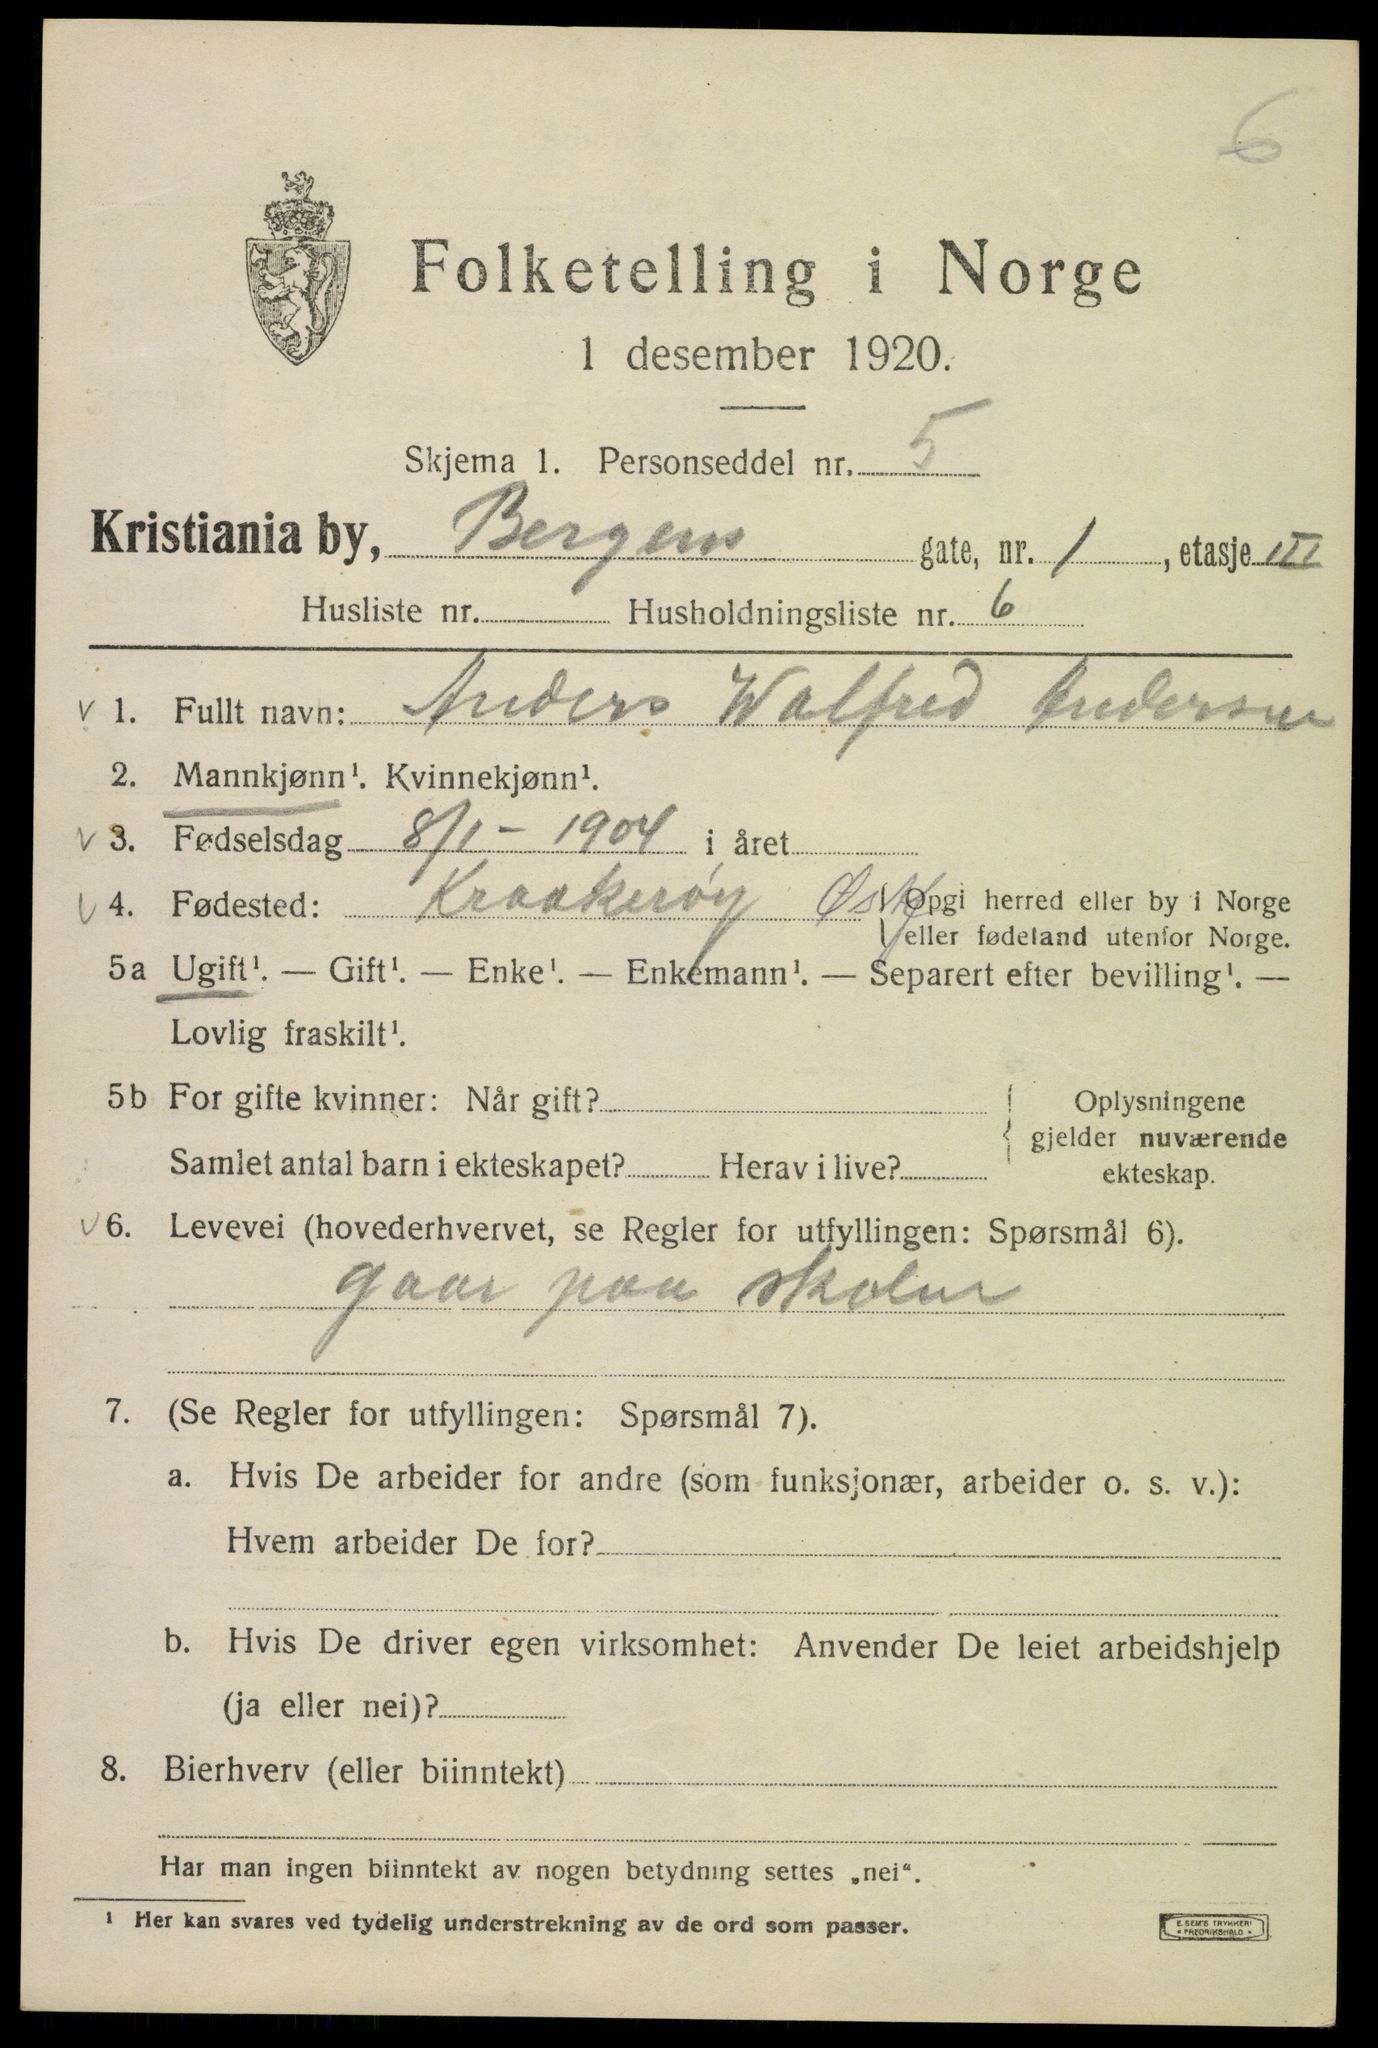 6
Folketelling i Norge
1 desember 1920.
Skjema 1. Personseddel nr. 5
Kristiania by, Bergens gate, nr. 1, etasje III
Husliste nr. Husholdningsliste nr. 6
v 1. Fullt navn: Anders Walfred Andersen
2. Mannkjønn¹. Kvinnekjønn¹.
v 3. Fødselsdag 8/1 - 1904 i året
v 4. Fødested: Kraakerøy Østf { Opgi herred eller by i Norge
eller fødeland utenfor Norge.
5a Ugift¹. — Gift¹. — Enke¹. — Enkemann¹. — Separert efter bevilling¹. —
Lovlig fraskilt¹.
5b For gifte kvinner: Når gift?
Samlet antal barn i ekteskapet? Herav i live?
Oplysningene
gjelder nuværende
ekteskap.
v 6. Levevei (hovederhvervet, se Regler for utfyllingen: Spørsmål 6).
gaar paa skolen
7. (Se Regler for utfyllingen: Spørsmål 7).
a. Hvis De arbeider for andre (som funksjonær, arbeider o. s. v.):
Hvem arbeider De for?
b. Hvis De driver egen virksomhet: Anvender De leiet arbeidshjelp
(ja eller nei)?
8. Bierhverv (eller biinntekt)
Har man ingen biinntekt av nogen betydning settes „nei“.
¹ Her kan svares ved tydelig understrekning av de ord som passer.
E. SEM'S TRYKKERI
* FREDRIKSHALD *